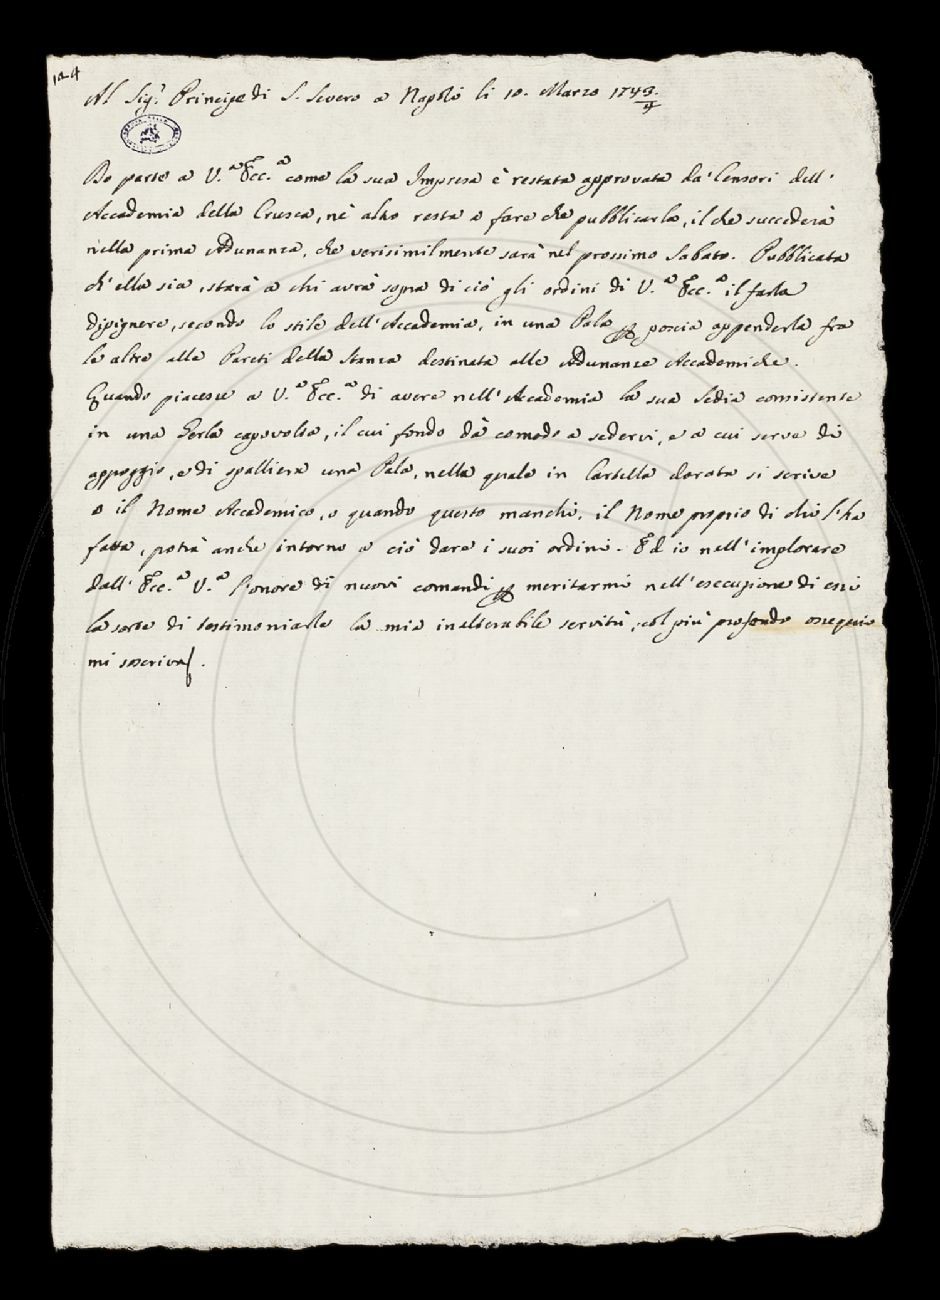 124
Al Sig.r Principe di S. Severo a Napoli li 10. Marzo 1743/4
Do parte a V.a Ecc.a come la sua Impresa è restata approvata da' Censori dell'
Accademia della Crusca, nè altro resta a fare che pubblicarla, il che succederà
nella prima Adunanza, che verisimilmente sarà nel prossimo Sabato. Pubblicata
ch'ella sia, starà a chi avrà sopra di ciò gli ordini di V.a Ecc.a il farla
dipignere, secondo lo stile dell'Accademia, in una Pala, poscia appenderla fra
le altre alle Pareti della Stanza destinata alle Adunanze Accademiche.
Quando piacesse a V.a Ecc.a di avere nell'Accademia la sua Sedia consistente
in una Gerla capovolta, il cui fondo dà comodo a sedervi, e a cui serve di
appoggio, e di spalliera una Pala, nella quale in Cartella dorata si scrive
o il Nome Accademico, o quando questo manchi, il Nome proprio di chi l'ha
fatta, potrà anche intorno a ciò dare i suoi ordini. Ed io nell'implorare
dall' Ecc.a V.a l'onore di nuovi comandi meritarmi nell'esecuzione di essi
la sorte di testimoniarle la mia inalterabile servitù, col più profondo ossequio
mi soscrivo.